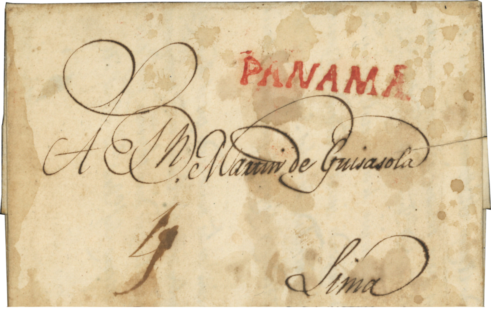 PANAMA
A Sr. D. Martin de Guisasola
4
Lima